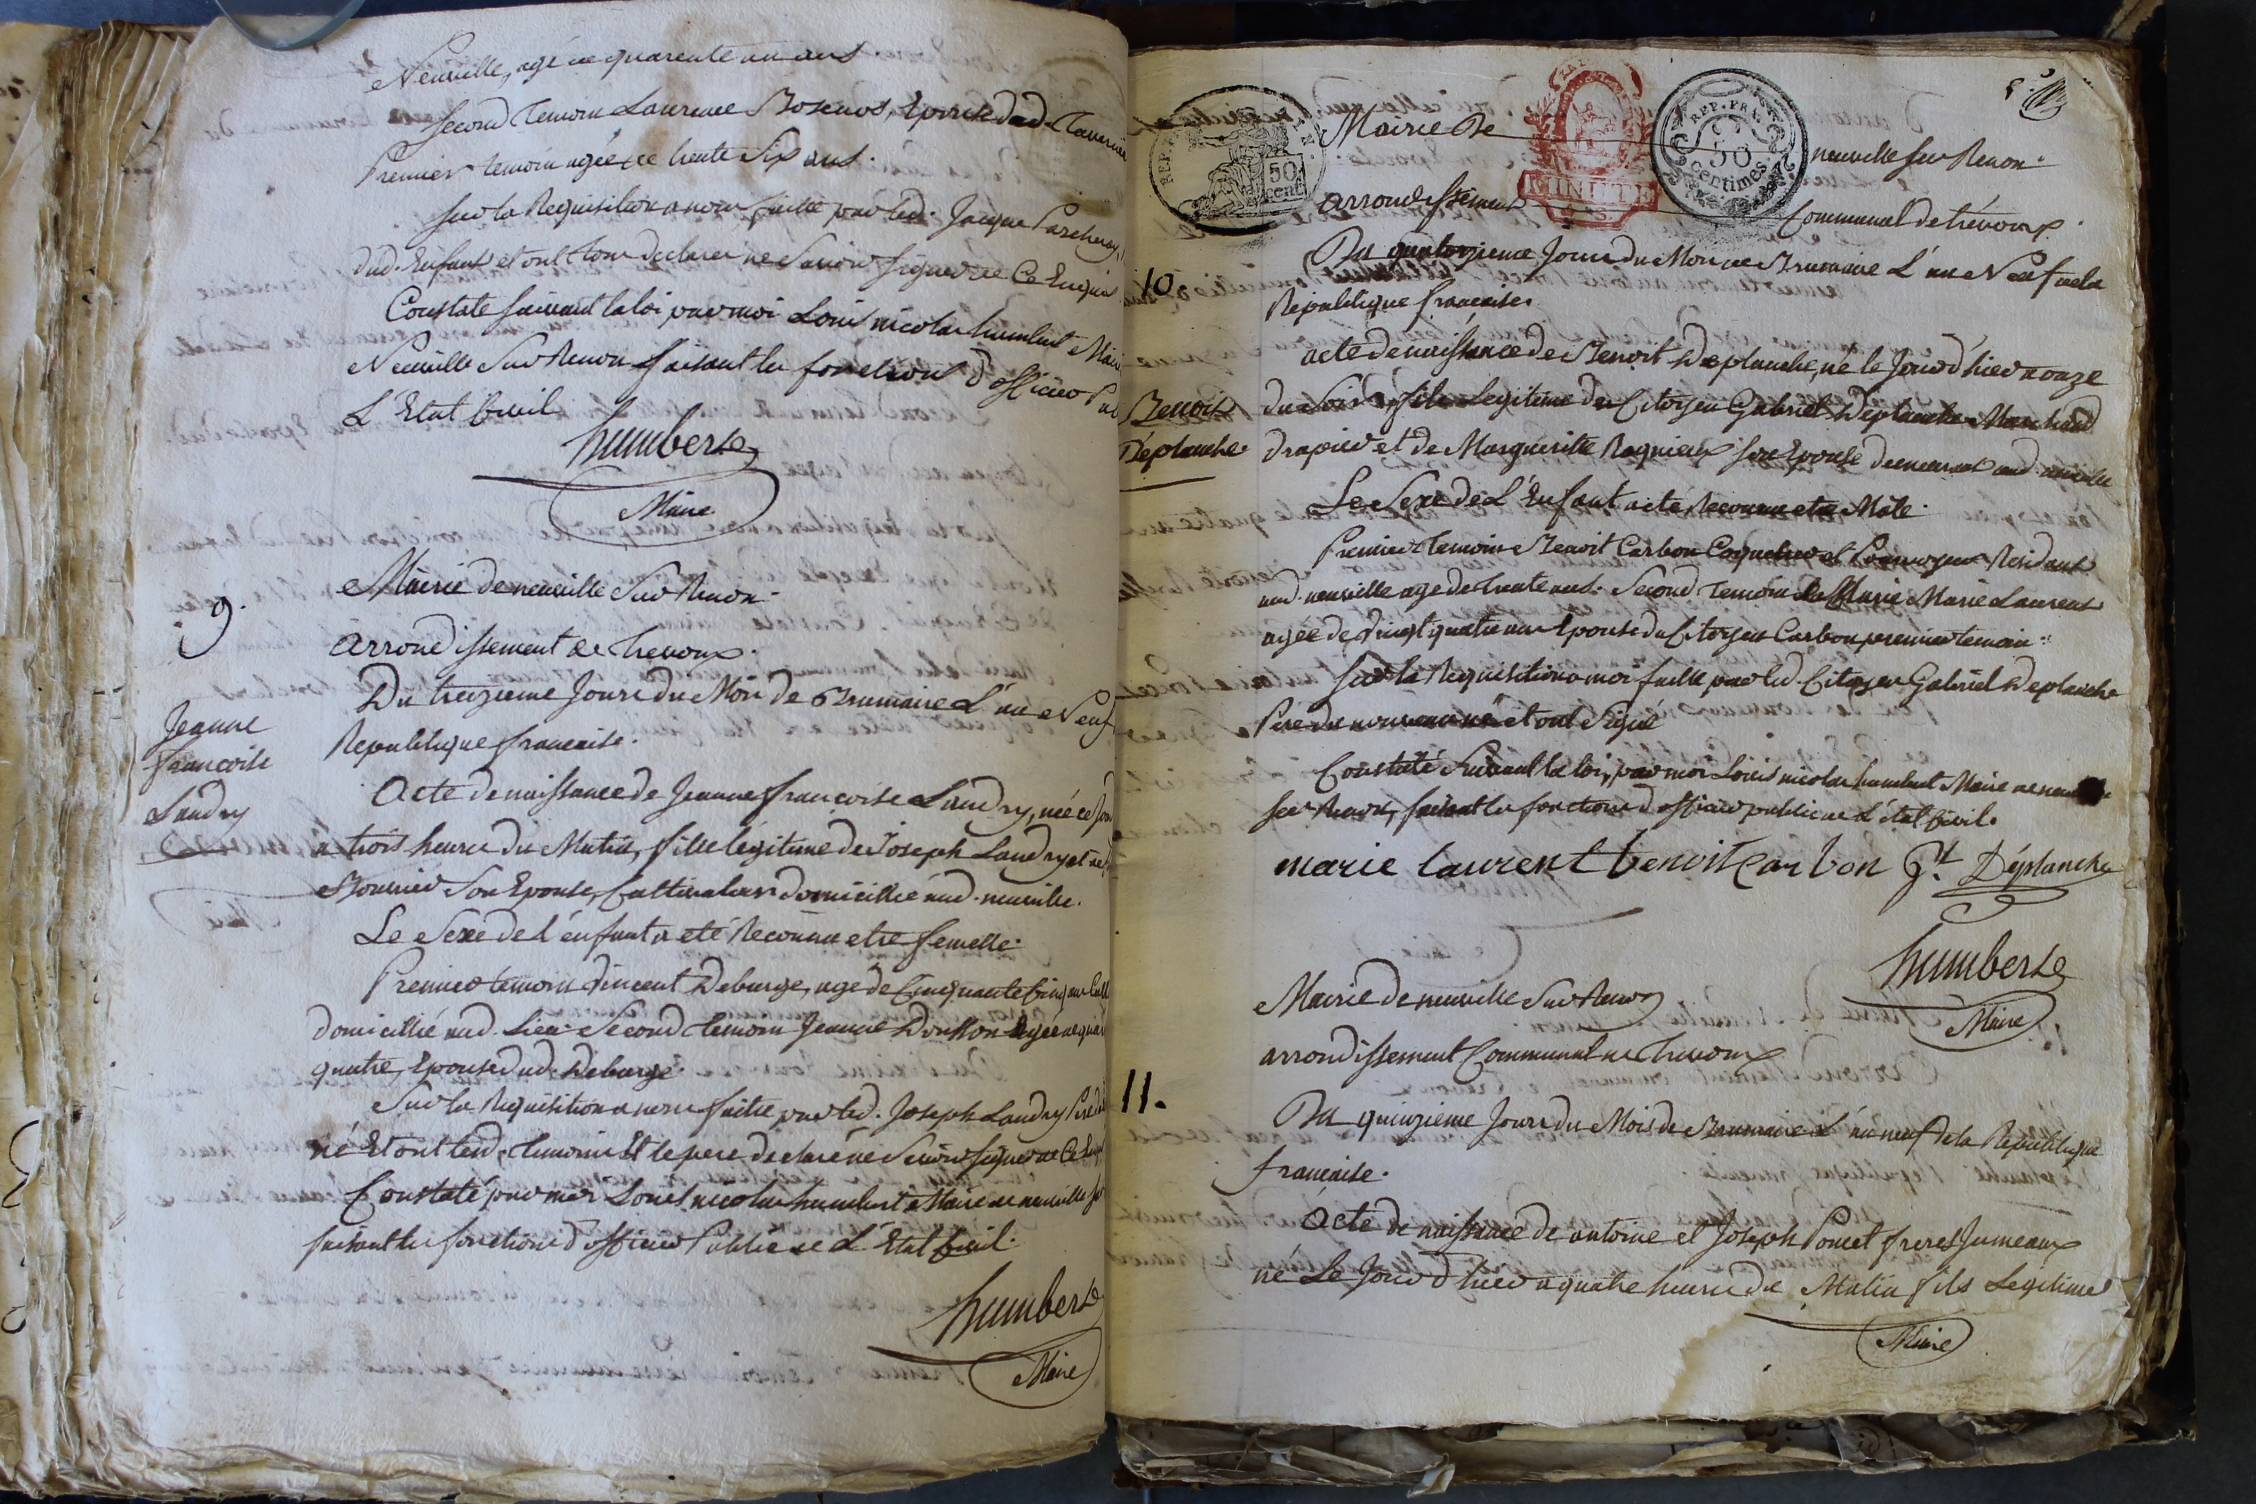 Neuville, agé de quarente un ans
Second temoin Laurence Epouse dud. Tavernier
Premier temoin agée de trente Six ans.
Sur la Requisition a nous faitte par led. Jacque
dud. Enfant et ont tous declarer ne Savoir signer de Ce Enquis
Constaté suivant la loi par moi Louis nicolas humbert Maire
Neuville Sur Renon faisant les fonctions d'officier Pub
L'Etat Civil
humbert
Maire
9.
Mairie de neuville Sur Renon.
Arrondissement de Trevoux.
Jeanne
francoise
Landry
Du treizieme Jour du Mois de Brumaire L'an Neuf
Republique francaise.
Acte de naissance de Jeanne francoise Landry, née ce jour
a trois heure du Matin, fille légitime de Joseph Landry et de
Son Epouse, Cultivateur domicillié aud. neuville.
Le Sexe de l'énfant a eté Reconnu etre femelle.
Premier temoin Vincent Deburge, agé de Cinquante Cinq ans
domicillié aud. Lieu Second temoin Jeanne agée de
quatre, Epouse dud. Deburge.
Sur la Requisition a nous faitte par led. Joseph Landry Pere
né Et ont lesd. temoins Et le pere declaré ne Savoir signer de Ce
Constaté par moi Louis nicolas humbert Maire de neuville
faisant les fonctions d'officier Public de L'Etat Civil.
humbert
Maire
REP. FRA.
50 cent
MINUTE
REP. FRA.
50
centimes
Mairie De neuville sur Renon.
arrondissement Communal de trévoux.
10.
Du quatorzieme Jour du Mois de Brumaire L'an Neuf de la
Republique française.
Benoit
Déplanche
acte de naissance de Benoit Deplanche, né le Jour d'hier a onze
du Soir, fils Legitime du Citoyen Gabriel Deplanche Marchand
drapier et de Marguerite son Epouse demeurant aud. neuville
Le Sexe de L'Enfant a eté Reconnu etre Mâle.
Premier temoin Benoit Carbon Residant
aud. neuville age de trente ans. Second temoin Marie Laurent
agée de Vingt quatre ans Epouse du Citoyen Carbon premier temoin
Sur la Requisition a moi faitte par led. Citoyen Gabriel Deplanche
Pere du nouveau né et ont Signé
Constaté Suivant la loi, par moi Louis nicolas humbert Maire de
sur Renon, faisant les fonctions d'officier public de L'état Civil.
marie laurent benoit carbon G.l Déplanche
humbert
Maire
Mairie de neuville Sur Renon
arrondissement Communal de Trevoux
11.
Du quinzieme Jour du Mois de Brumaire L'an neuf de la Republique
francaise.
Acte de naissance de antoine et Joseph Poncet freres Jumeaux
né Le Jour d'hier a quatre heure du Matin fils Legitime
Maire